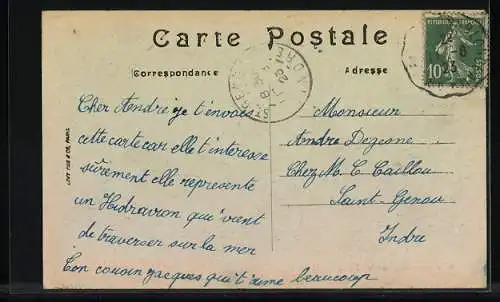 Carte Postale
Correspondance
Adresse
10
Cher André je t'envois
cette carte car elle t'interesse
sûrement elle représente
un Hidravion qui vient
de traverser sur la mer
Ton cousin Jacques qui t'aime beaucoup
Monsieur
Andre Degesne
Chez M. C. Caillou
Saint-Genou
Indre